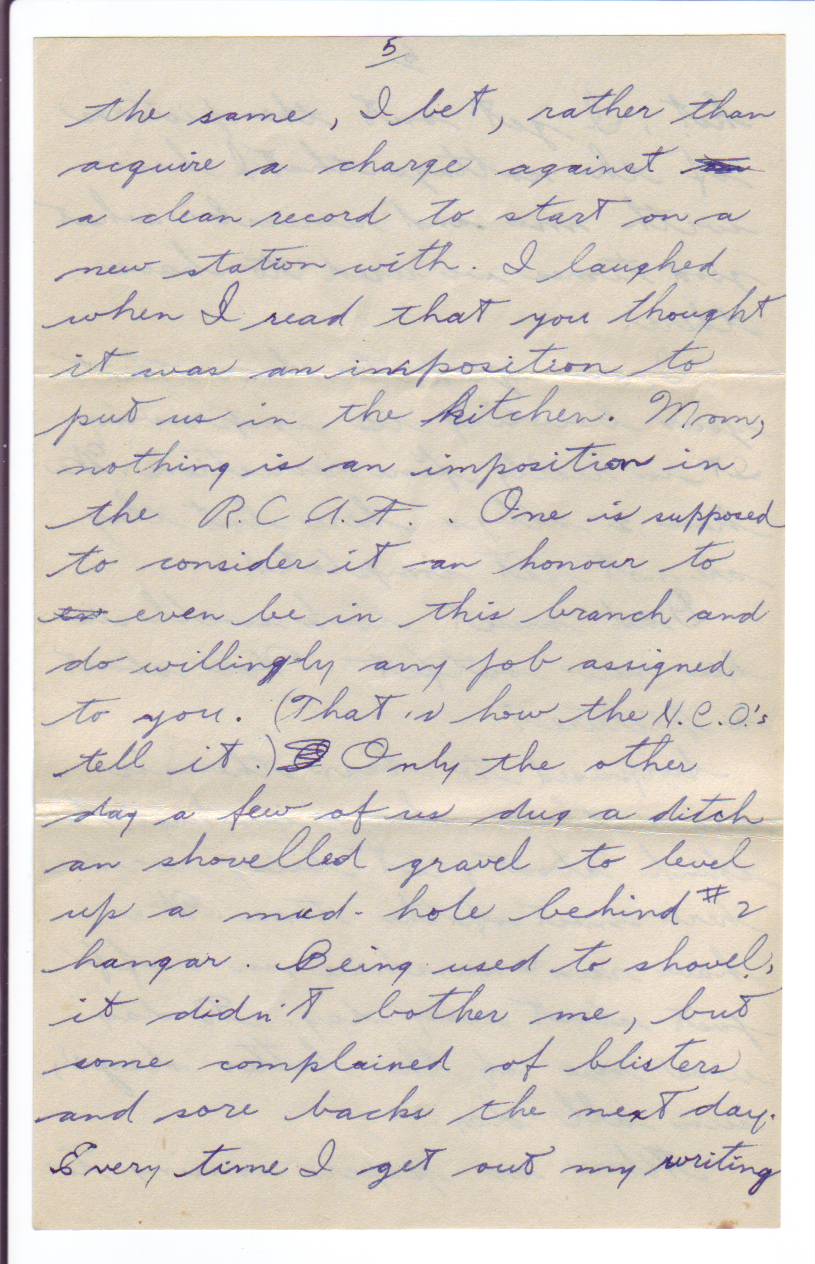 5
the same, I bet, rather than
acquire a charge against
a clean record to start on a
new station with. I laughed
when I read that you thought
it was an imposition to
put us in the kitchen. Mom,
nothing is an imposition in
the R.C.A.F. . One is supposed
to consider it an honour to
even be in this branch and
do willingly any job assigned
to you. (That is how the N.C.O.'s
tell it.) Only the other
day a few of us dug a ditch
an shovelled gravel to level
up a mud-hole behind #2
hangar. Being used to shovel,
it didn't bother me, but
some complained of blisters
and sore backs the next day.
Every time I get out my writing